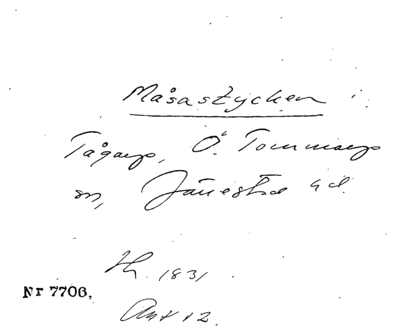 Måsastycken
Tågarp, Ö. Tommarps
sn, Järrestad hd.
Hh. 1831
Nr 7706.
Ant 12.